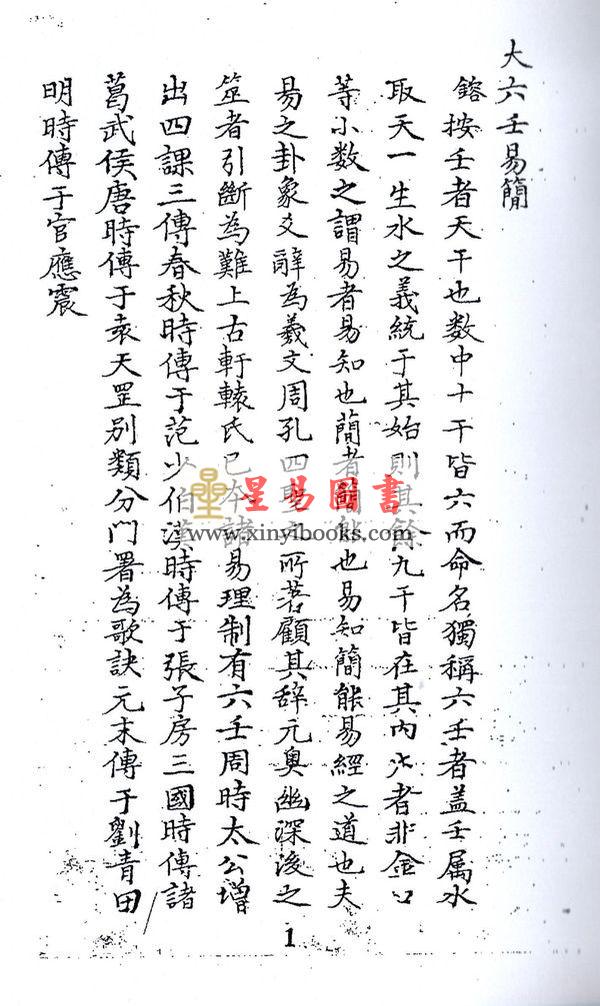 大六壬易簡
鎔按壬者天干也数中十干皆六而命名獨稱六壬者盖壬属水
取天一生水之義統于其始則其餘九干皆在其内 者非金口
等小数之謂易者易知也簡者簡能也易知簡能易經之道也夫
易之卦象爻辭為羲文周孔四聖之所著顧其辞元奥幽深後之
筮者引斷為難上古軒轅氏已本諸易理制有六壬周時太公增
出四課三傳春秋時傳于范少伯漢時傳于張子房三國時傳諸
葛武侯唐時傳于袁天罡别類分門署為歌訣元末傳于劉青田
明時傳于官應震
星易圖書
www.xinyibooks.com
1